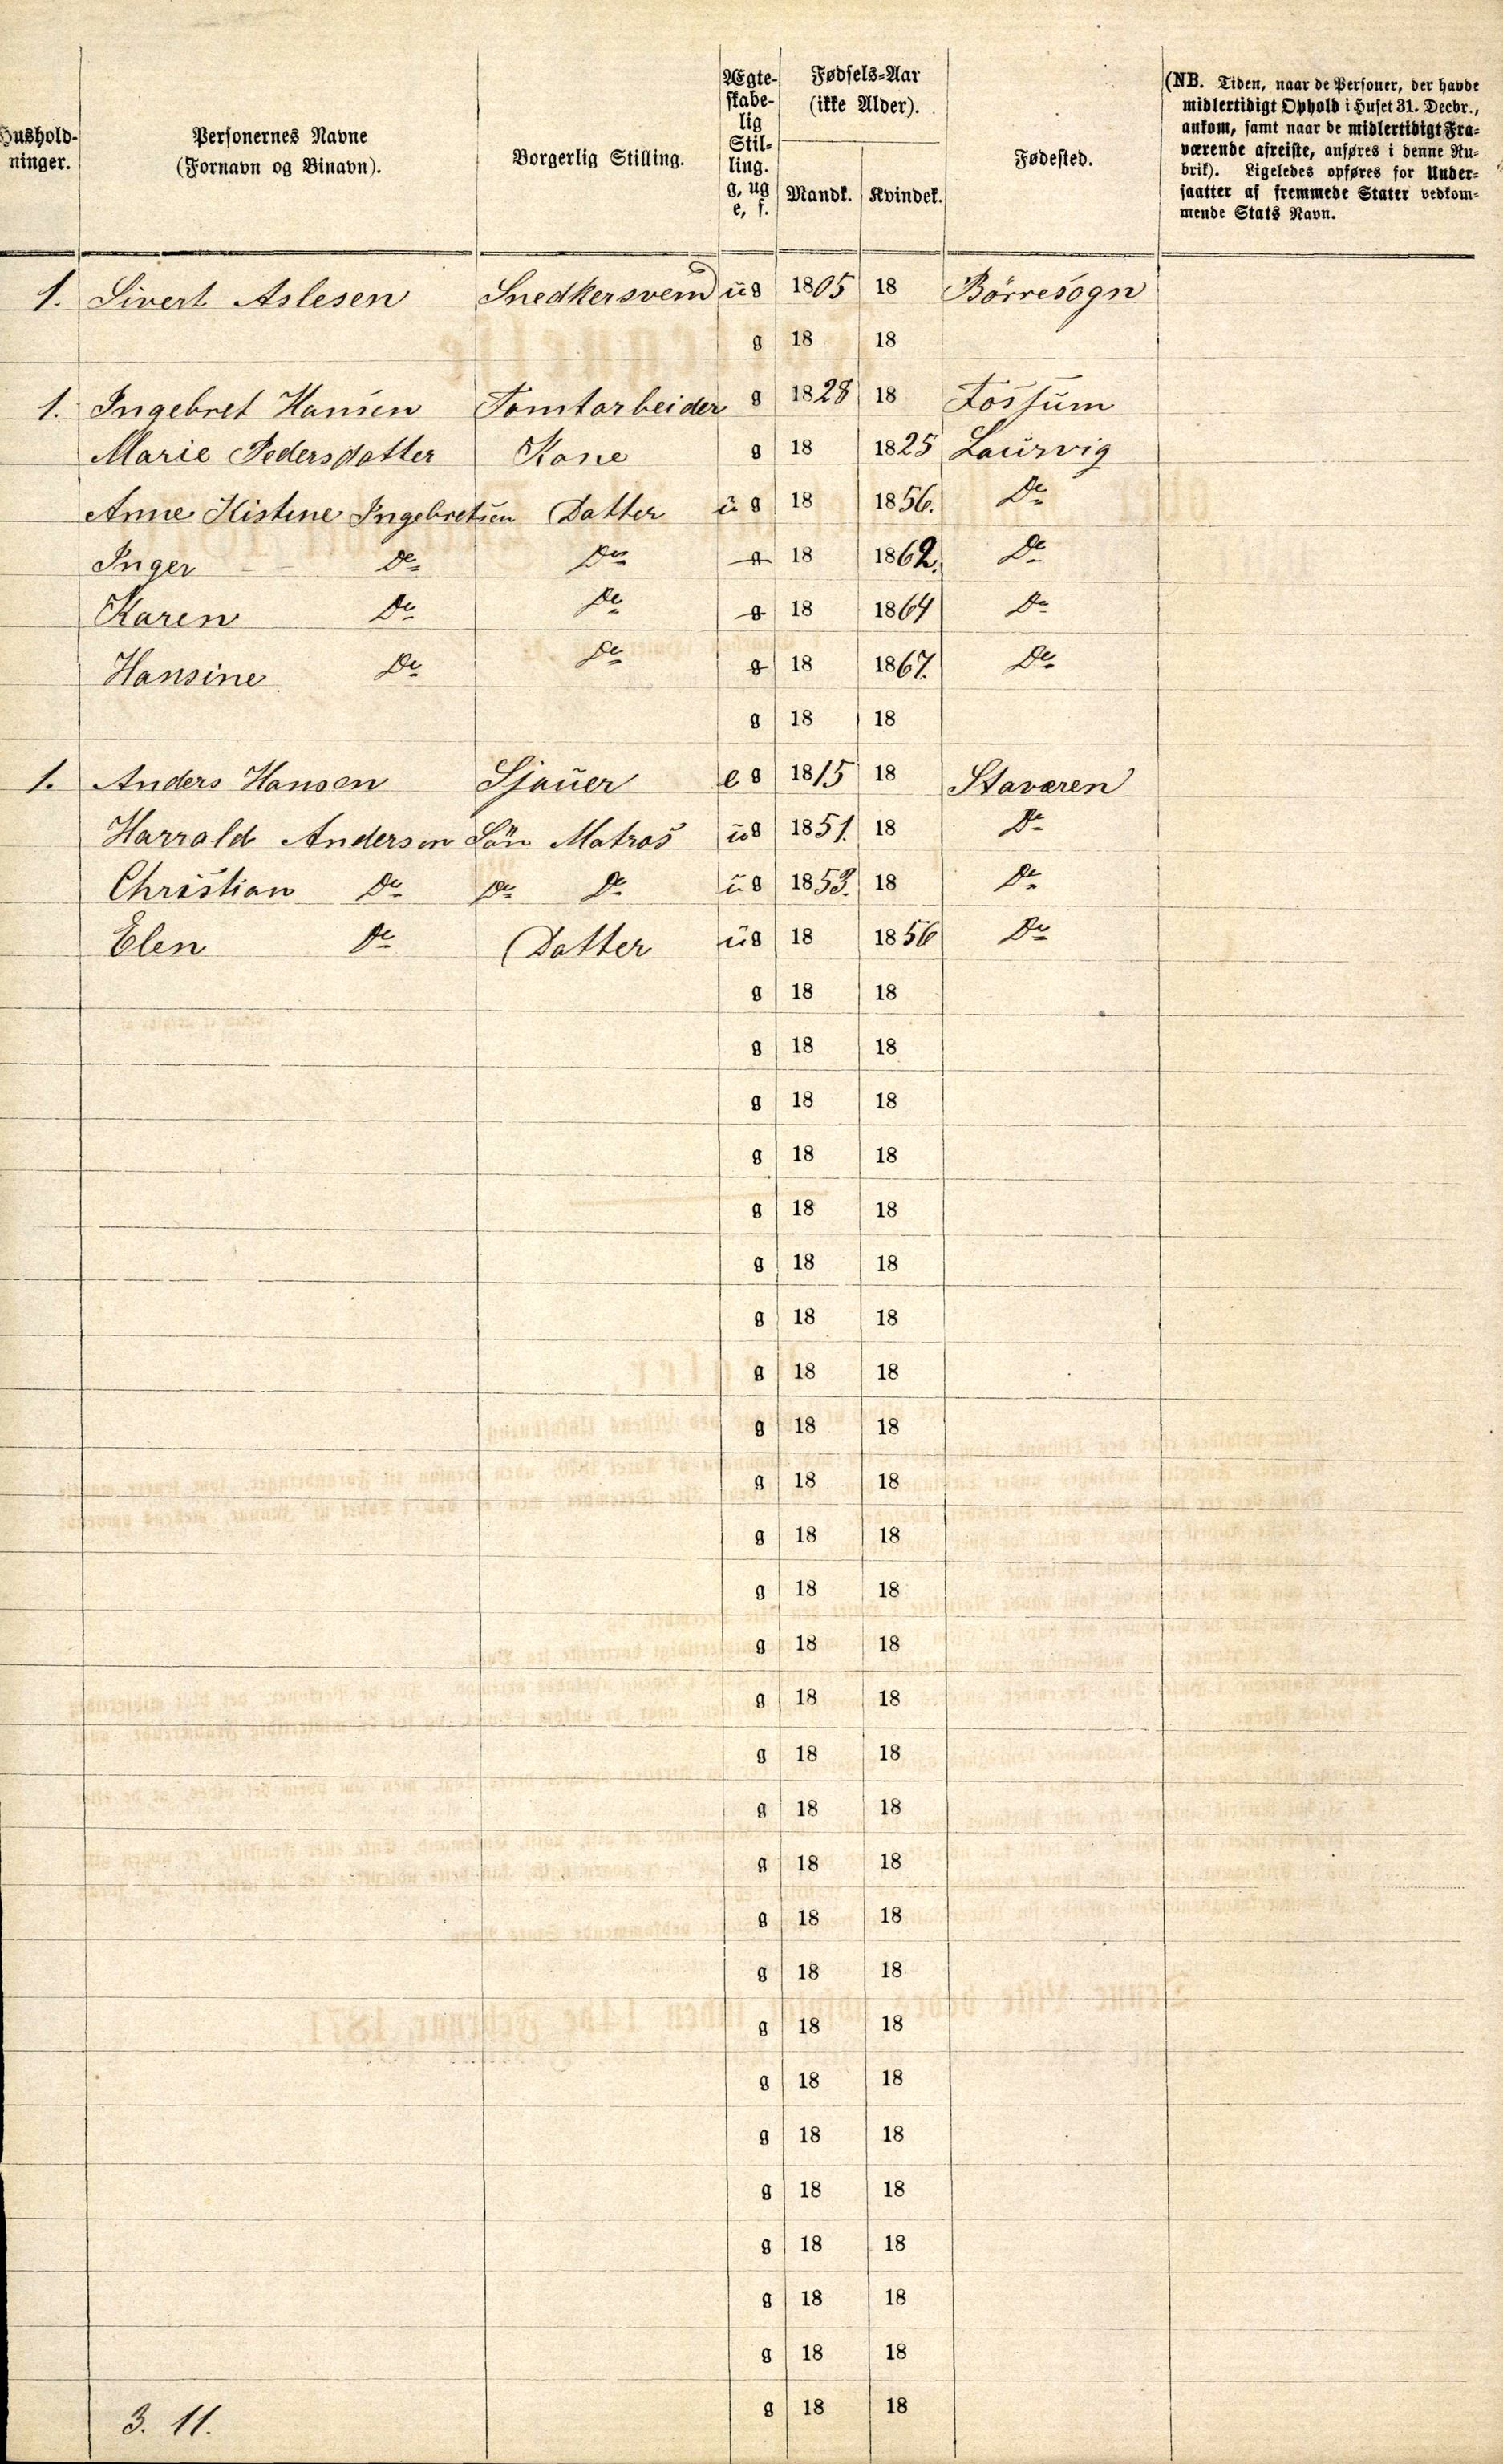 Hushold-
ninger.
Personernes Navne
(Fornavn og Binavn).
Borgerlig Stilling.
Ægte-
skabe-
lig
Stil-
ling.
g, ug
e, f.
Fødsels-Aar
(ikke Alder).
Mandk. Kvindek.
Fødested.
(NB. Tiden, naar de Personer, der havde
midlertidigt Ophold i Huset 31. Decbr.,
ankom, samt naar de midlertidigt Fra-
værende afreiste, anføres i denne Ru-
brik). Ligeledes opføres for Under-
saatter af fremmede Stater vedkom-
mende Stats Navn.
1. Sivert Aslesen Snedkersvend ug 1805 18 Börresogn
g 18 18
1. Ingebret Hansen Tomtarbeider g 1828 18 Fossum
Marie Pedersdatter Kone g 18 1825 Laurvig
Anne Kistine Ingebretsen Datter ug 18 1856. Do
Inger Do Do g 18 1862. Do
Karen Do Do g 18 1864 Do
Hansine Do Do g 18 1867. Do
g 18 18
1. Anders Hansen Sjauer e g 1815 18 Staværen
Harrald Andersen Sön Matros ug 1851. 18 Do
Christian Do Do Do ug 1853. 18 Do
Elen Do Datter ug 18 1856 Do
g 18 18
g 18 18
g 18 18
g 18 18
g 18 18
g 18 18
g 18 18
g 18 18
g 18 18
g 18 18
g 18 18
g 18 18
g 18 18
g 18 18
g 18 18
g 18 18
g 18 18
g 18 18
g 18 18
g 18 18
g 18 18
g 18 18
g 18 18
g 18 18
g 18 18
g 18 18
3. 11. g 18 18